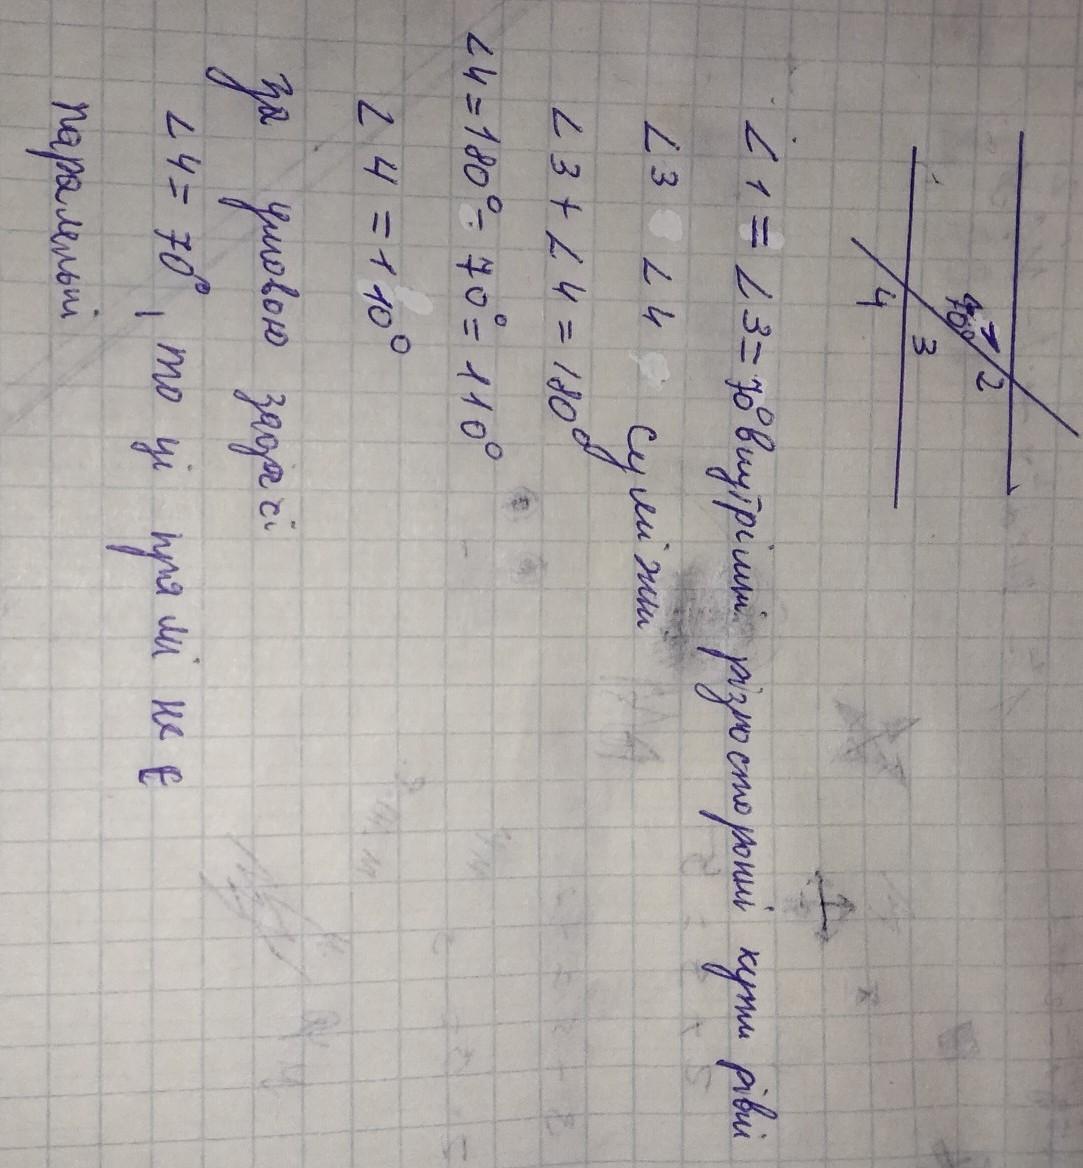 1
2
70°
3
4
∠1 = ∠3 = 70° внутрішні різносторонні кути рівні
∠3 ∠4 суміжні
∠3 + ∠4 = 180°
∠4 = 180° - 70° = 110°
∠4 = 110°
За умовою задачі
∠4 = 70°, то ці прямі не є
паралельні